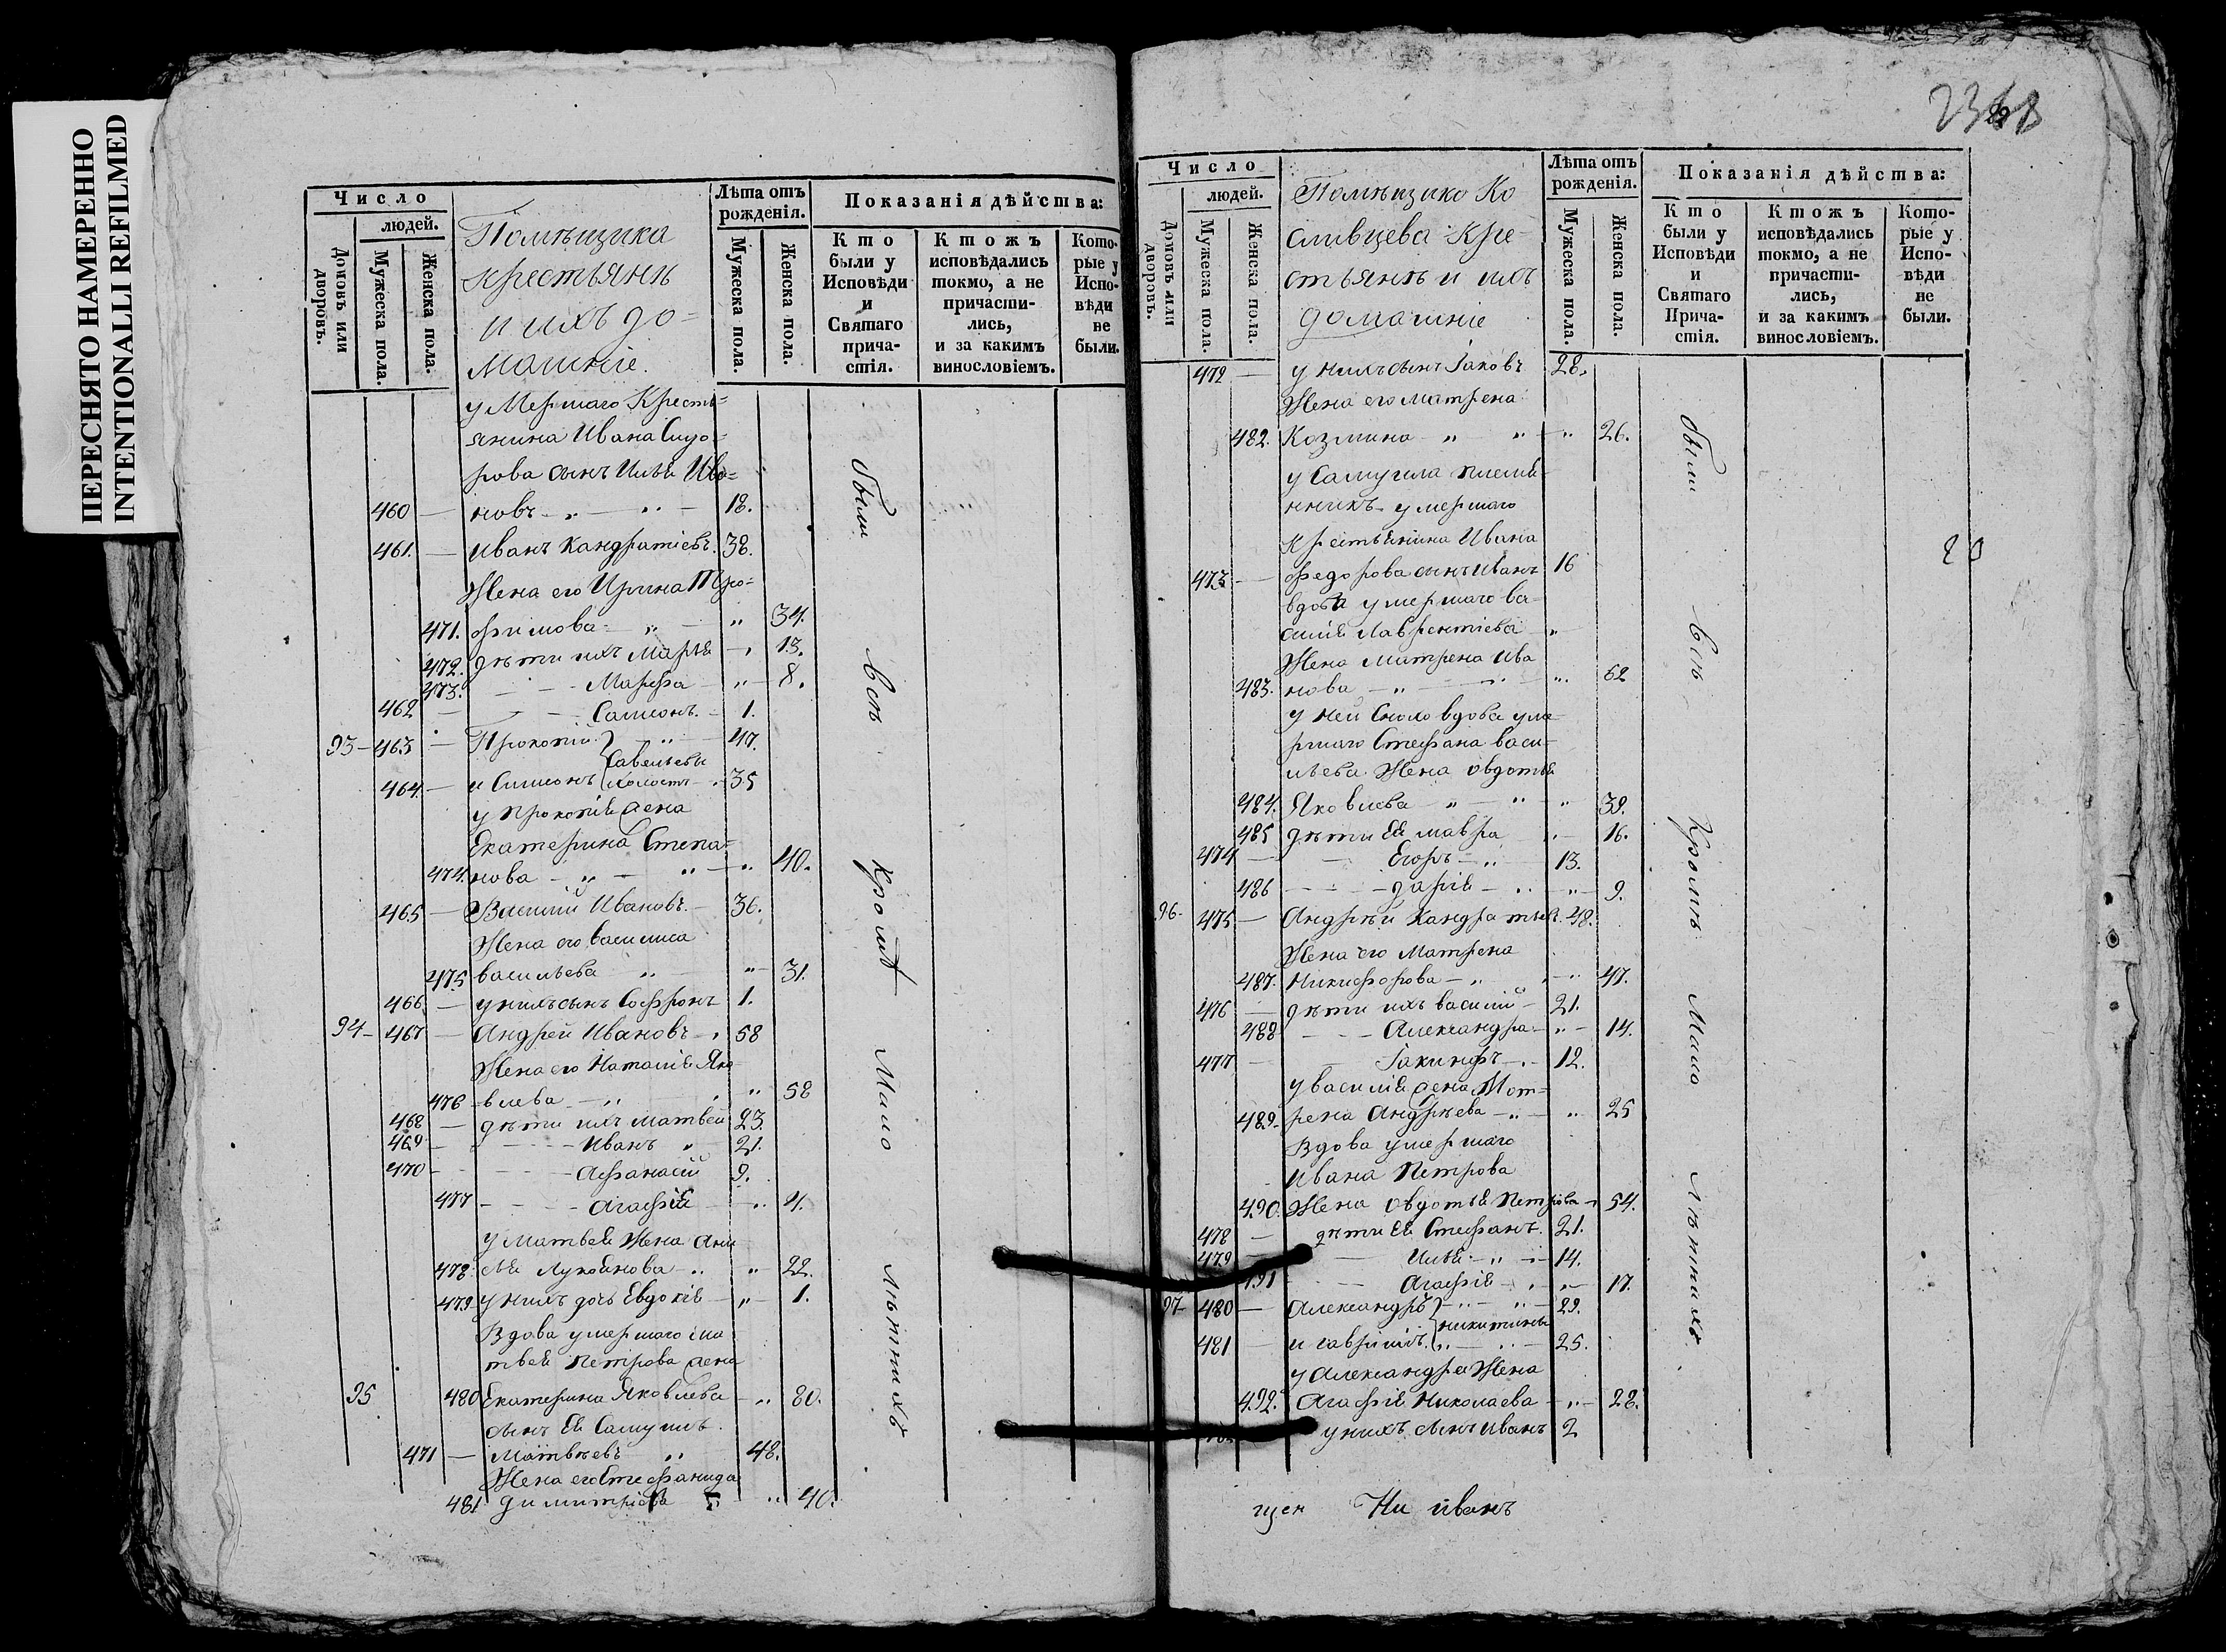 ПЕРЕСНЯТО НАМЕРЕННО
INTENTIONALLI REFILMED
Число
людей.
Домовъ или дворовъ.
Мужеска пола.
Женска пола.
Помѣщика
крестьянѣ
и ихъ до=
машніе.
Лѣта отъ рожденія.
Мужеска пола.
Женска пола.
Показанія дѣйства:
Кто были у Исповѣди и Святаго причастія.
Ктожъ исповѣдались токмо, а не причастились, и за какимъ винословіемъ.
Которые у Исповѣди не были.
умершаго Кресть=
янина Ивана Сидо=
рова сынъ Илья Ива=
460 — новъ — „ — „ — 18.
461. — Иванъ Кандратіевъ. 38.
Жена его Ирина Тро=
471. фимова — „ — „ 34.
472. дѣти ихъ Марья — „ 13.
473. — — Марфа — „ — 8.
462 — — — Самсонъ. — 1.
93 — 463 — Прокопій } — „ — 47.
Савельевы
464. — и Симеонъ { холостъ — 35
у Прокопія жена
Екатерина Степа=
474. нова — „ — „ — „ 40.
465 — Василій Ивановъ. — 36.
Жена его Василиса
475 васильева „ — „ — 31.
466. — у нихъ сынъ Софронъ 1.
94 — 467 — Андрей Ивановъ — 58
Жена его Наталія Яко
476 влева — „ — „ 58
468 — дѣти ихъ Матвей 23.
469 — — — Иванъ „ 21.
470 — — — Афанасій 9.
477 — — — Агафія — „ 4.
у Матвея Жена
478 Лукоянова — „ „ 22.
479 у нихъ дочь Евдокія — „ — 1.
Вдова умершаго Ма
твея Петрова жена
95 480 Екатерина Яковлева — „ 80.
сынъ Ея Самуилъ
471 — Матвѣевъ „ 48.
Жена его Стефанида
481 димитріева — „ 40.
были всѣ кромѣ Мало лѣтнихъ
Число
людей.
Домовъ или дворовъ.
Мужеска пола.
Женска пола.
Помѣщика Ко
сливцева Кре=
стьянѣ и ихъ
домашніе
Лѣта отъ рожденія.
Мужеска пола.
Женска пола.
Показанія дѣйства:
Кто были у Исповѣди и Святаго Причастія.
Ктожъ исповѣдались токмо, а не причастились, и за какимъ винословіемъ.
Которые у Исповѣди не были.
472 — у нихъ сынъ Іаковъ 28.
Жена его Матрена
482. Козмина — „ „ — „ 26.
у Самуила племя=
нникъ умершаго
Крестьянина Ивана
473 — Федорова сынъ Иванъ 16
вдова умершаго Ва=
силія Лаврентіева — „
Жена Матрена Ива
483. нова — „ — „ 52
у ней Сноха вдова уме=
ршаго Стефана Васи=
льева Жена Овдотья
484. Яковлева — „ — „ — „ 39.
485 дѣти Ея Мавра „ — 16.
474 — — Егоръ — „ — 13.
486 — — — Дарія — „ — „ — 9.
96 — 475 — Андрѣй Кандратьев. 48.
Жена его Матрена
487. Никифорова — „ — „ 47.
476 — дѣти ихъ Василій — 21.
488 — — Александра — „ — 14.
477 — — Іакинфъ — „ — 12.
у Василія жена Мат=
489. рена Андрѣева — „ — „ 25
Вдова умершаго
Ивана Петрова
490. Жена Овдотья Петрова — 54.
478 — дѣти Ея Стефанъ. 21.
479 — Илья — „ — 14.
491 — — Агафія — „ — 17.
97 — 480 — Александръ } — „ — „ — 29.
Никитины
481 — и Гавріилъ. { „ — „ — 25.
у Александра Жена
492. Агафія Николаева — „ — 28.
у нихъ сынъ Иванъ 2
были всѣ Кромѣ Мало лѣтнихъ.
щен Ни иванъ